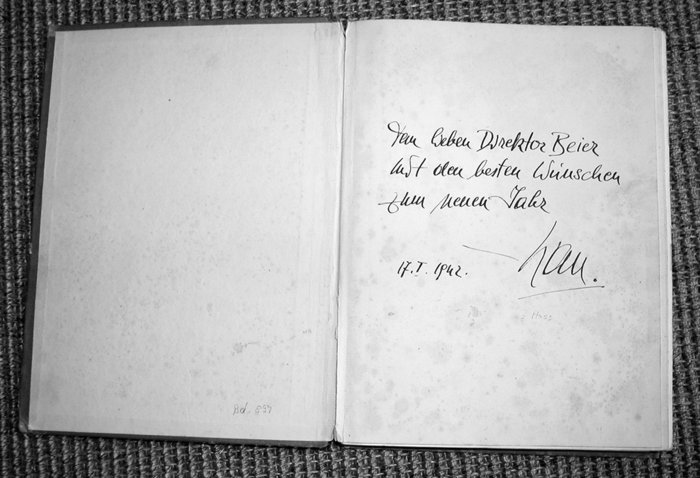 Bel. 897
Dem lieben Direktor Beier
mit den besten Wünschen
zum neuen Jahr
17.I.1942.